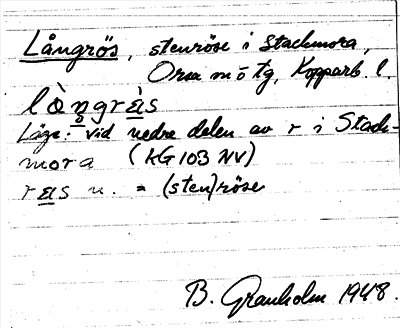 Långrös, stenröse i Stackmora,
Orsa m o tg, Kopparb. l.
Läge: vid nedre delen av r i Stack-
mora (KG 103 NV)
n. = (sten)röse
B. Granholm 1948.